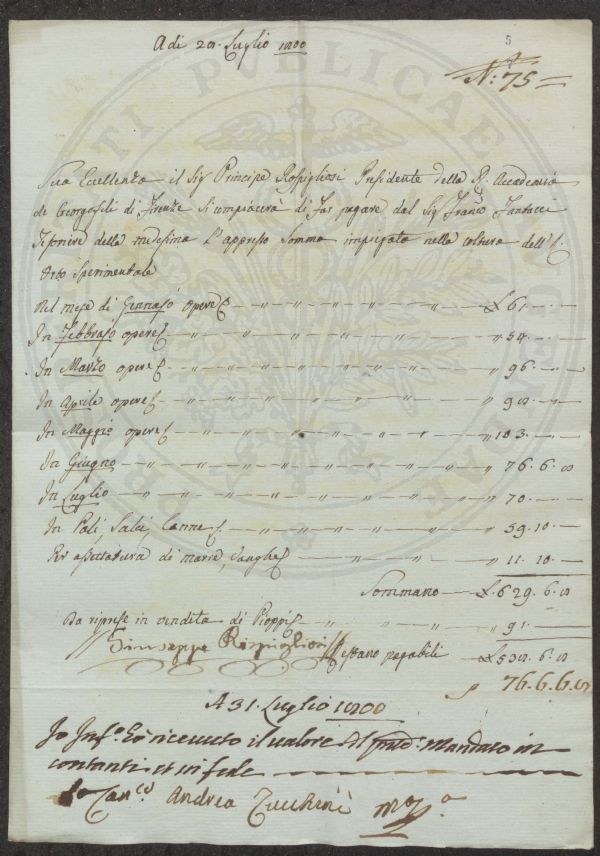 A di 28 Luglio 1800
5
N.° 75
Sua Eccellenza il Sig.r Principe Rospigliosi Presidente della R. Accademia
de Georgofili di Firenze si compiacerà di far pagare dal Sig.r Franco Fantacci
Tesoriere della medesima l'appresso Somma impiegata nella coltura dell'
Orto Sperimentale
Nel mese di Gennajo opere £ 61. —
In Febbrajo opere " 54. —
In Marzo opere " 96. —
In Aprile opere " 98. —
In Maggio opere " 103. —
In Giugno " 76. 6. 8
In Luglio " 70. —
In Pali, Salci, Canne " 59. 10. —
Per " 11. 10. —
Sommano £. 629. 6. 8
Da riprese in vendita di Pioppi " 91. —
Giuseppe Rospigliosi Restano pagabili £ 538. 6. 8
76. 6. 6. 8
A 31 Luglio 1800
Io Inf.o ho ricevuto il valore del pred.o Mandato in
contanti et in fede
Io Can.co Andrea Zucchini m.o p.o